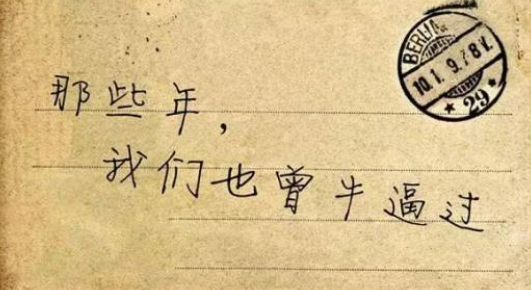 那些年,
我们也曾牛逼过
BERLIN
10.1. 9.7-8V.
* 29 *